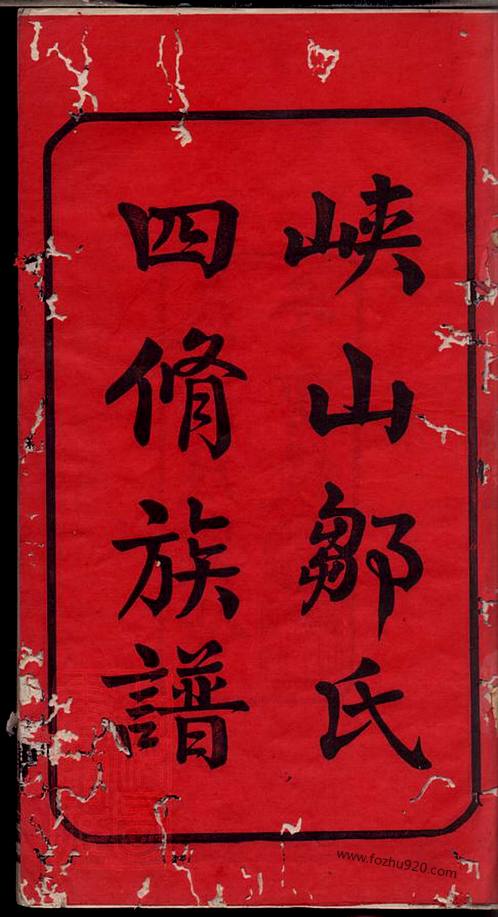 峽山鄒氏
四脩族譜
www.fozhu920.com